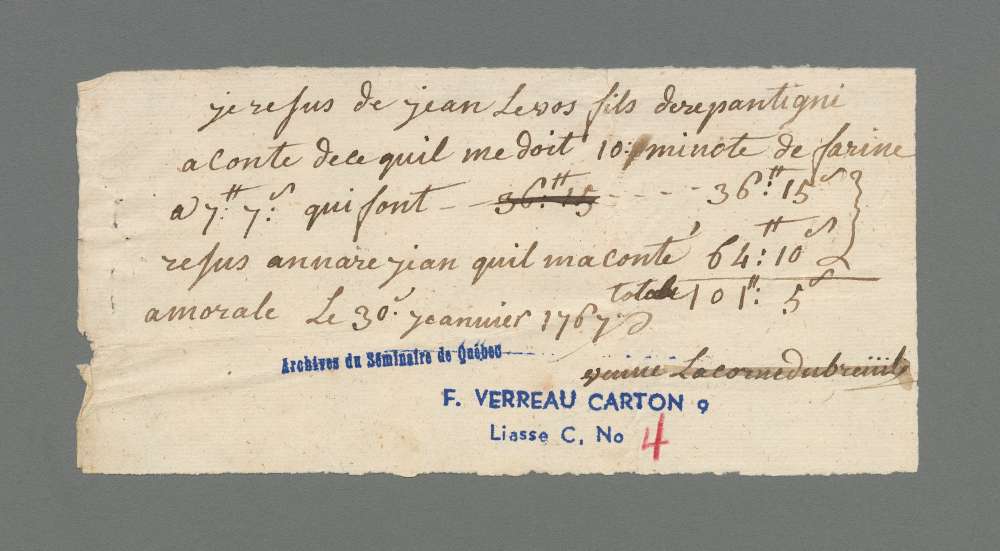 je resus de jean Levos fils derepantigni
aconte dece quil me doit 10: minote de farine
a 7:tt 7:s qui font 36:tt 15 36:tt 15s
resus annare jean quil maconté 64:tt 10s
totale 101:tt 5s
amorale Le 30: jeanvier 1767
Archives du Séminaire de Québec
veuve Lacornedubreuil
F. VERREAU CARTON 9
Liasse C, No 4